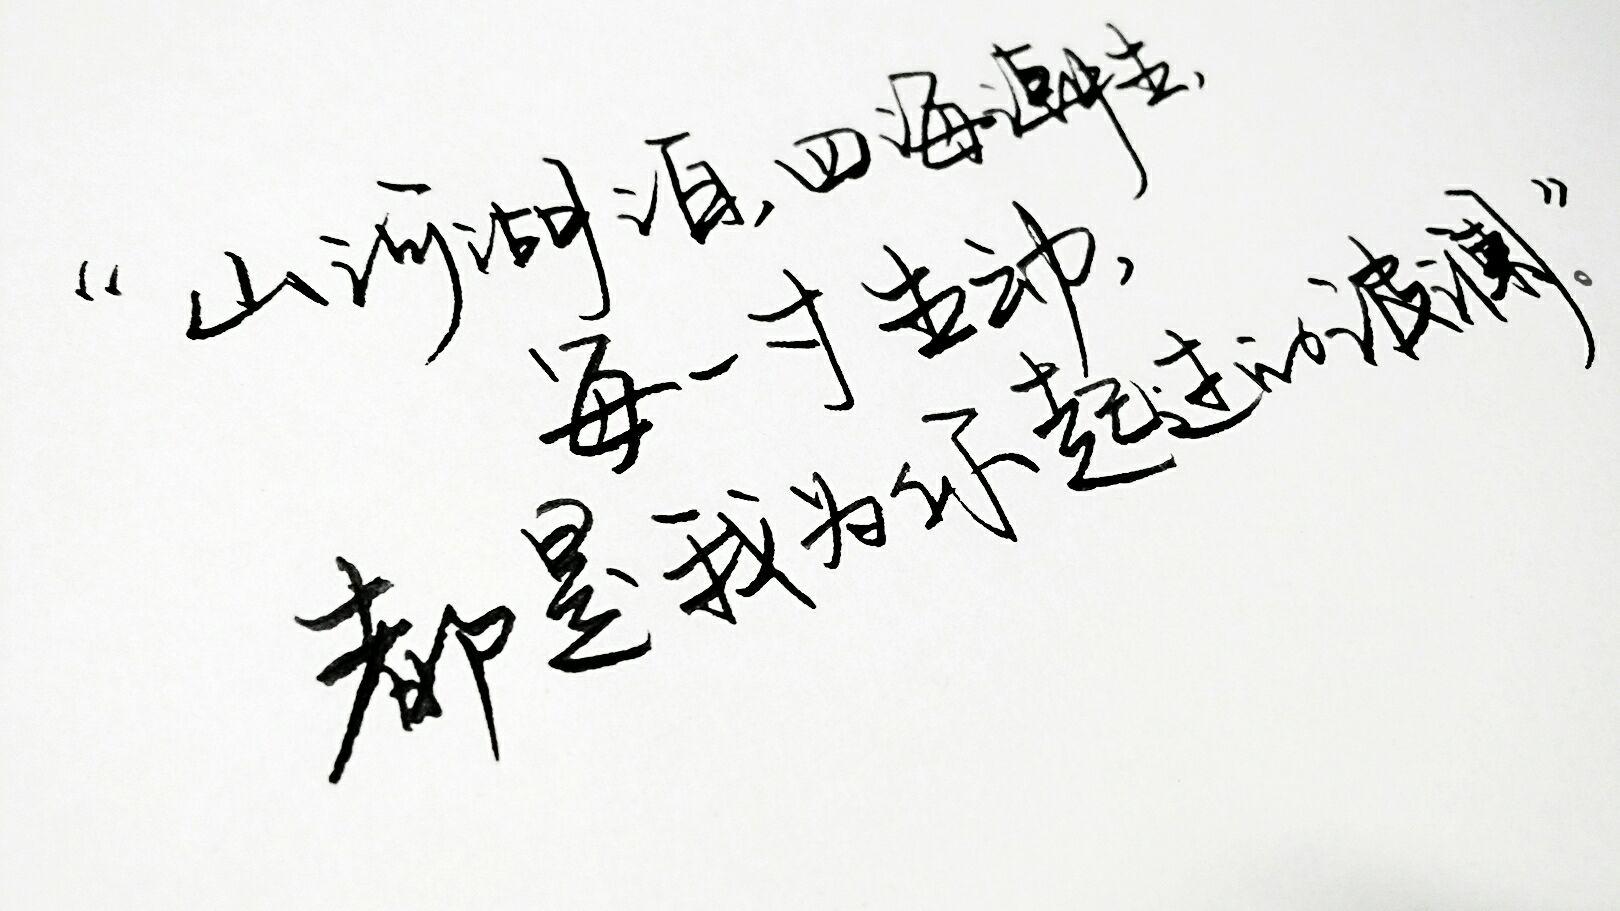 “山河湖泊,四海潮生,
每一寸生动,
都是我为你起过的波澜”。